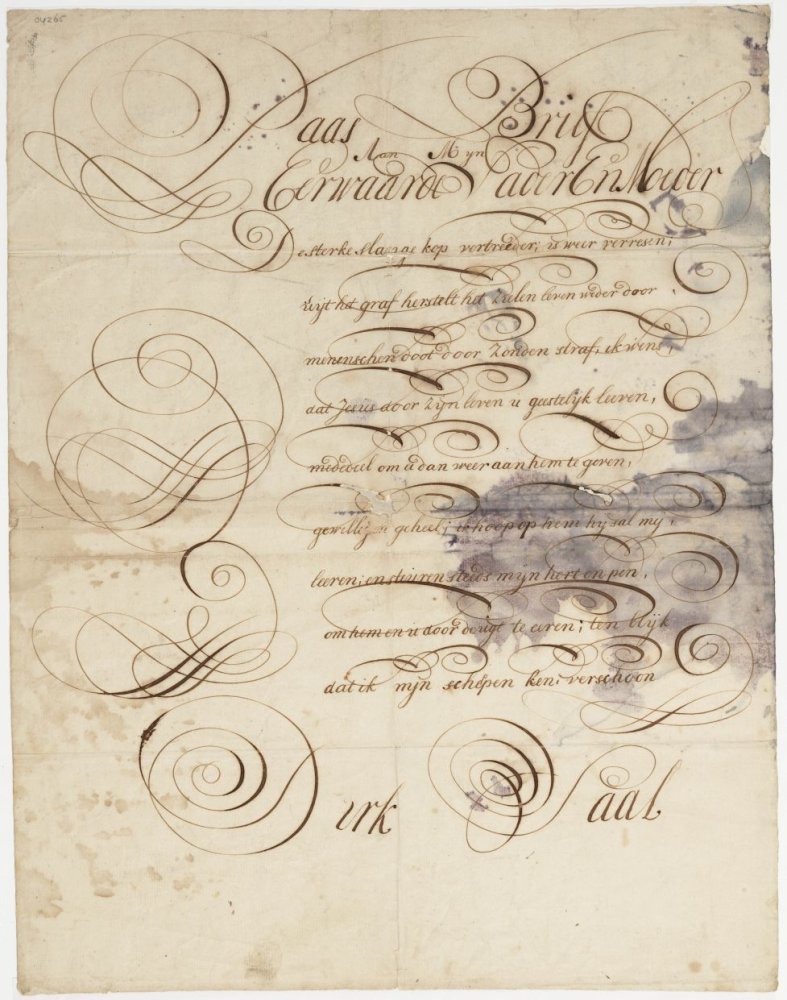 04265
Paas Brief
Aan Mijn
Eerwaarde Vader En Moeder
De sterke slange kop vertreeder; is weer verresen;
uijt het graf herstelt het Zielen leven weder door
menenschen doot door Zonden straf, ik wens,
dat Jesus door Zijn leven u geestelijk leeven,
mededeel om u dan weer aan hem te geven,
gewillig geheel; ik hoop op hem hy sal my,
leeren; en stuuren steets mijn hert en pen,
om hem en u door deugt te eeren; ten blijk
dat ik mijn schepen ken; verschoon
Dirk Taal